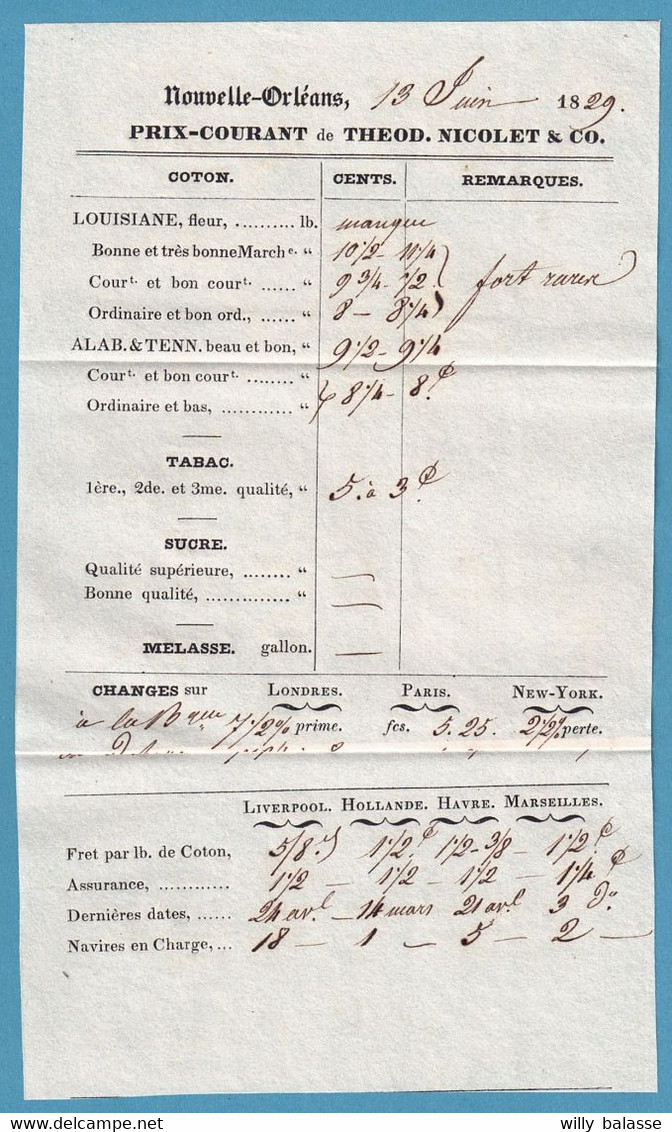 Nouvelle-Orléans, 13 Juin 1829.
PRIX-COURANT de THEOD. NICOLET & CO.
COTON. CENTS. REMARQUES.
LOUISIANE, fleur, .......... lb. manque
Bonne et très bonne Marche. “ 10 1/2 - 11 1/4
Court. et bon court. ...... “ 9 3/4 - 1/2. fort rares
Ordinaire et bon ord., ...... “ 8 - 8 1/4
ALAB. & TENN. beau et bon, “ 9 1/2 - 9 1/4
Court. et bon court. ........ “ 8 1/4 - 8.
Ordinaire et bas, ............ “
TABAC.
1ère., 2de. et 3me. qualité, “ 5. à 3
SUCRE.
Qualité supérieure, ........ “ —
Bonne qualité, .............. “ —
MELASSE. gallon. —
CHANGES sur LONDRES. PARIS. NEW-YORK.
à la Bque 7 1/2 % prime. fcs. 5.25. 2 1/2 % perte.
LIVERPOOL. HOLLANDE. HAVRE. MARSEILLES.
Fret par lb. de Coton, 5/8. 1 1/2 1 1/2 - 3/8 - 1 1/2
Assurance, ............ 1 1/2 - 1 1/2 - 1 1/2 - 1 1/4
Dernières dates, ...... 24 avl. - 14 mars 21 avl. 3 do
Navires en Charge, ... 18 - 1 - 5 - 2 -
delcampe.net
willy balasse